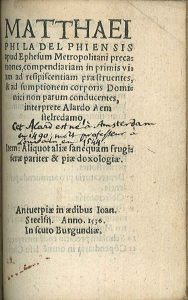 MATTHAEI
PHILADELPHIENSIS
apud Ephesum Metropolitani precationes
compendiariam in primis viam
ad resipiscentiam præstruentes,
& ad sumptionem corporis Dominici
non parum conducentes,
interprete Alardo Aemstelredamo,
Cet Alard est né à Amsterdam
en 1490, professeur à
Louvain en
Item: Aliquot aliæ sanequam frugiferæ
pariter & piæ doxologiæ.
Antuerpiæ in ædibus Ioan.
Steelsii. Anno. 1536.
In scuto Burgundiæ.